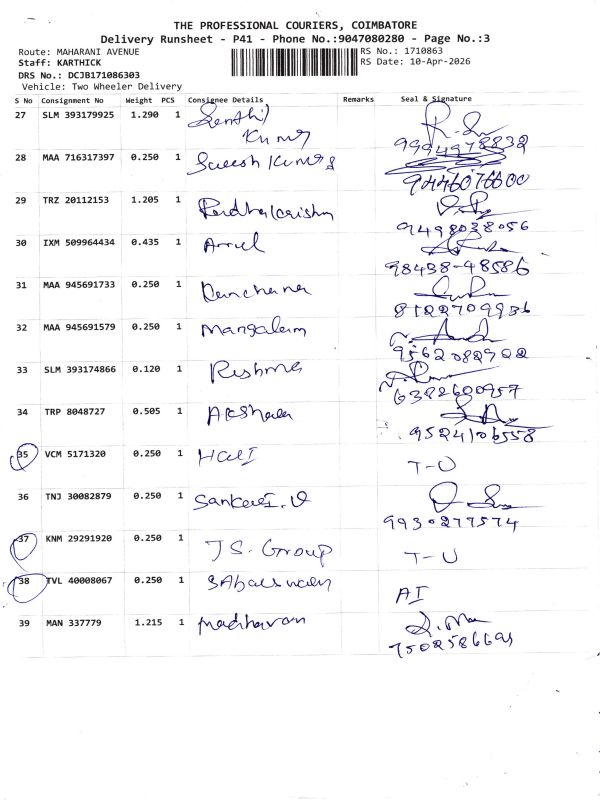 THE PROFESSIONAL COURIERS, COIMBATORE
Delivery Runsheet - P41 - Phone No.:9047080280 - Page No.:3
Route: MAHARANI AVENUE RS No.: 1710863
Staff: KARTHICK RS Date: 10-Apr-2026
DRS No.: DCJB171086303
Vehicle: Two Wheeler Delivery
S No Consignment No Weight PCS Consignee Details Remarks Seal & Signature
27 SLM 393179925 1.290 1 Senthil
Kumar
9994978832
28 MAA 716317397 0.250 1 Sureesh Kumar
9446076600
29 TRZ 20112153 1.205 1 Radhakrishnan
9498038056
30 IXM 509964434 0.435 1 Arrul
98438-48586
31 MAA 945691733 0.250 1 Kanchana
8122709936
32 MAA 945691579 0.250 1 Mangalam
9562082922
33 SLM 393174866 0.120 1 Reshma
6382600957
34 TRP 8048727 0.505 1 Akshara
9524106558
35 VCM 5171320 0.250 1 T-U
36 TNJ 30082879 0.250 1
9930277574
37 KNM 29291920 0.250 1 JS. Group T-U
38 TVL 40008067 0.250 1 AI
39 MAN 337779 1.215 1 Madhavan
7502586694